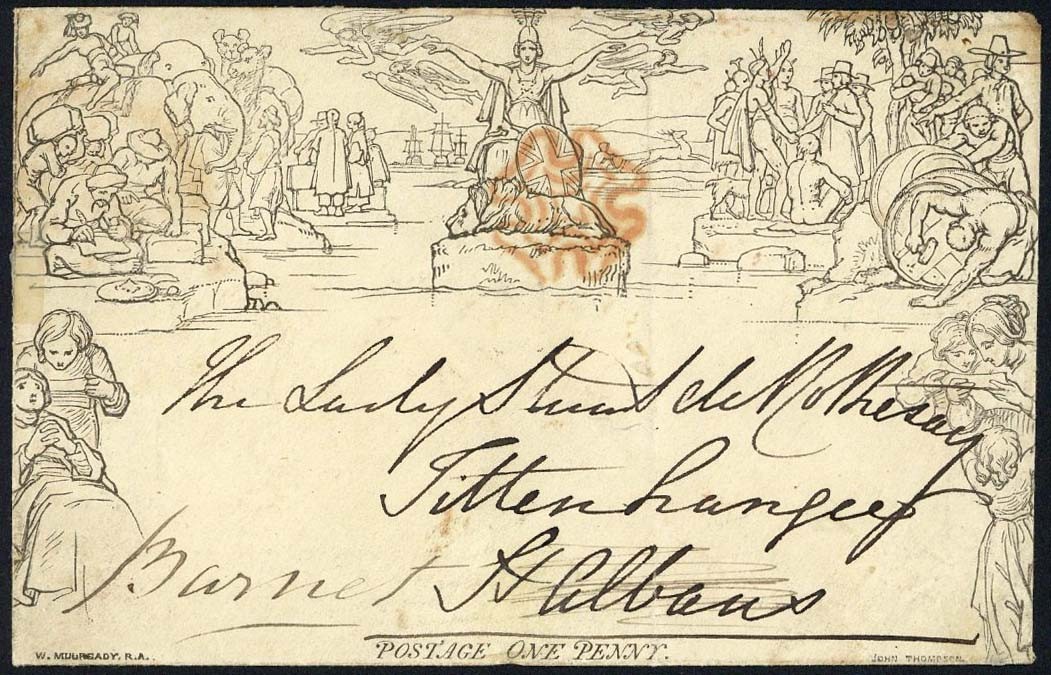 The Lady Stuart de Rothesay
Tittenhanger
Barnet St Albans
POSTAGE ONE PENNY.
W. MULREADY, R.A.
JOHN THOMPSON.